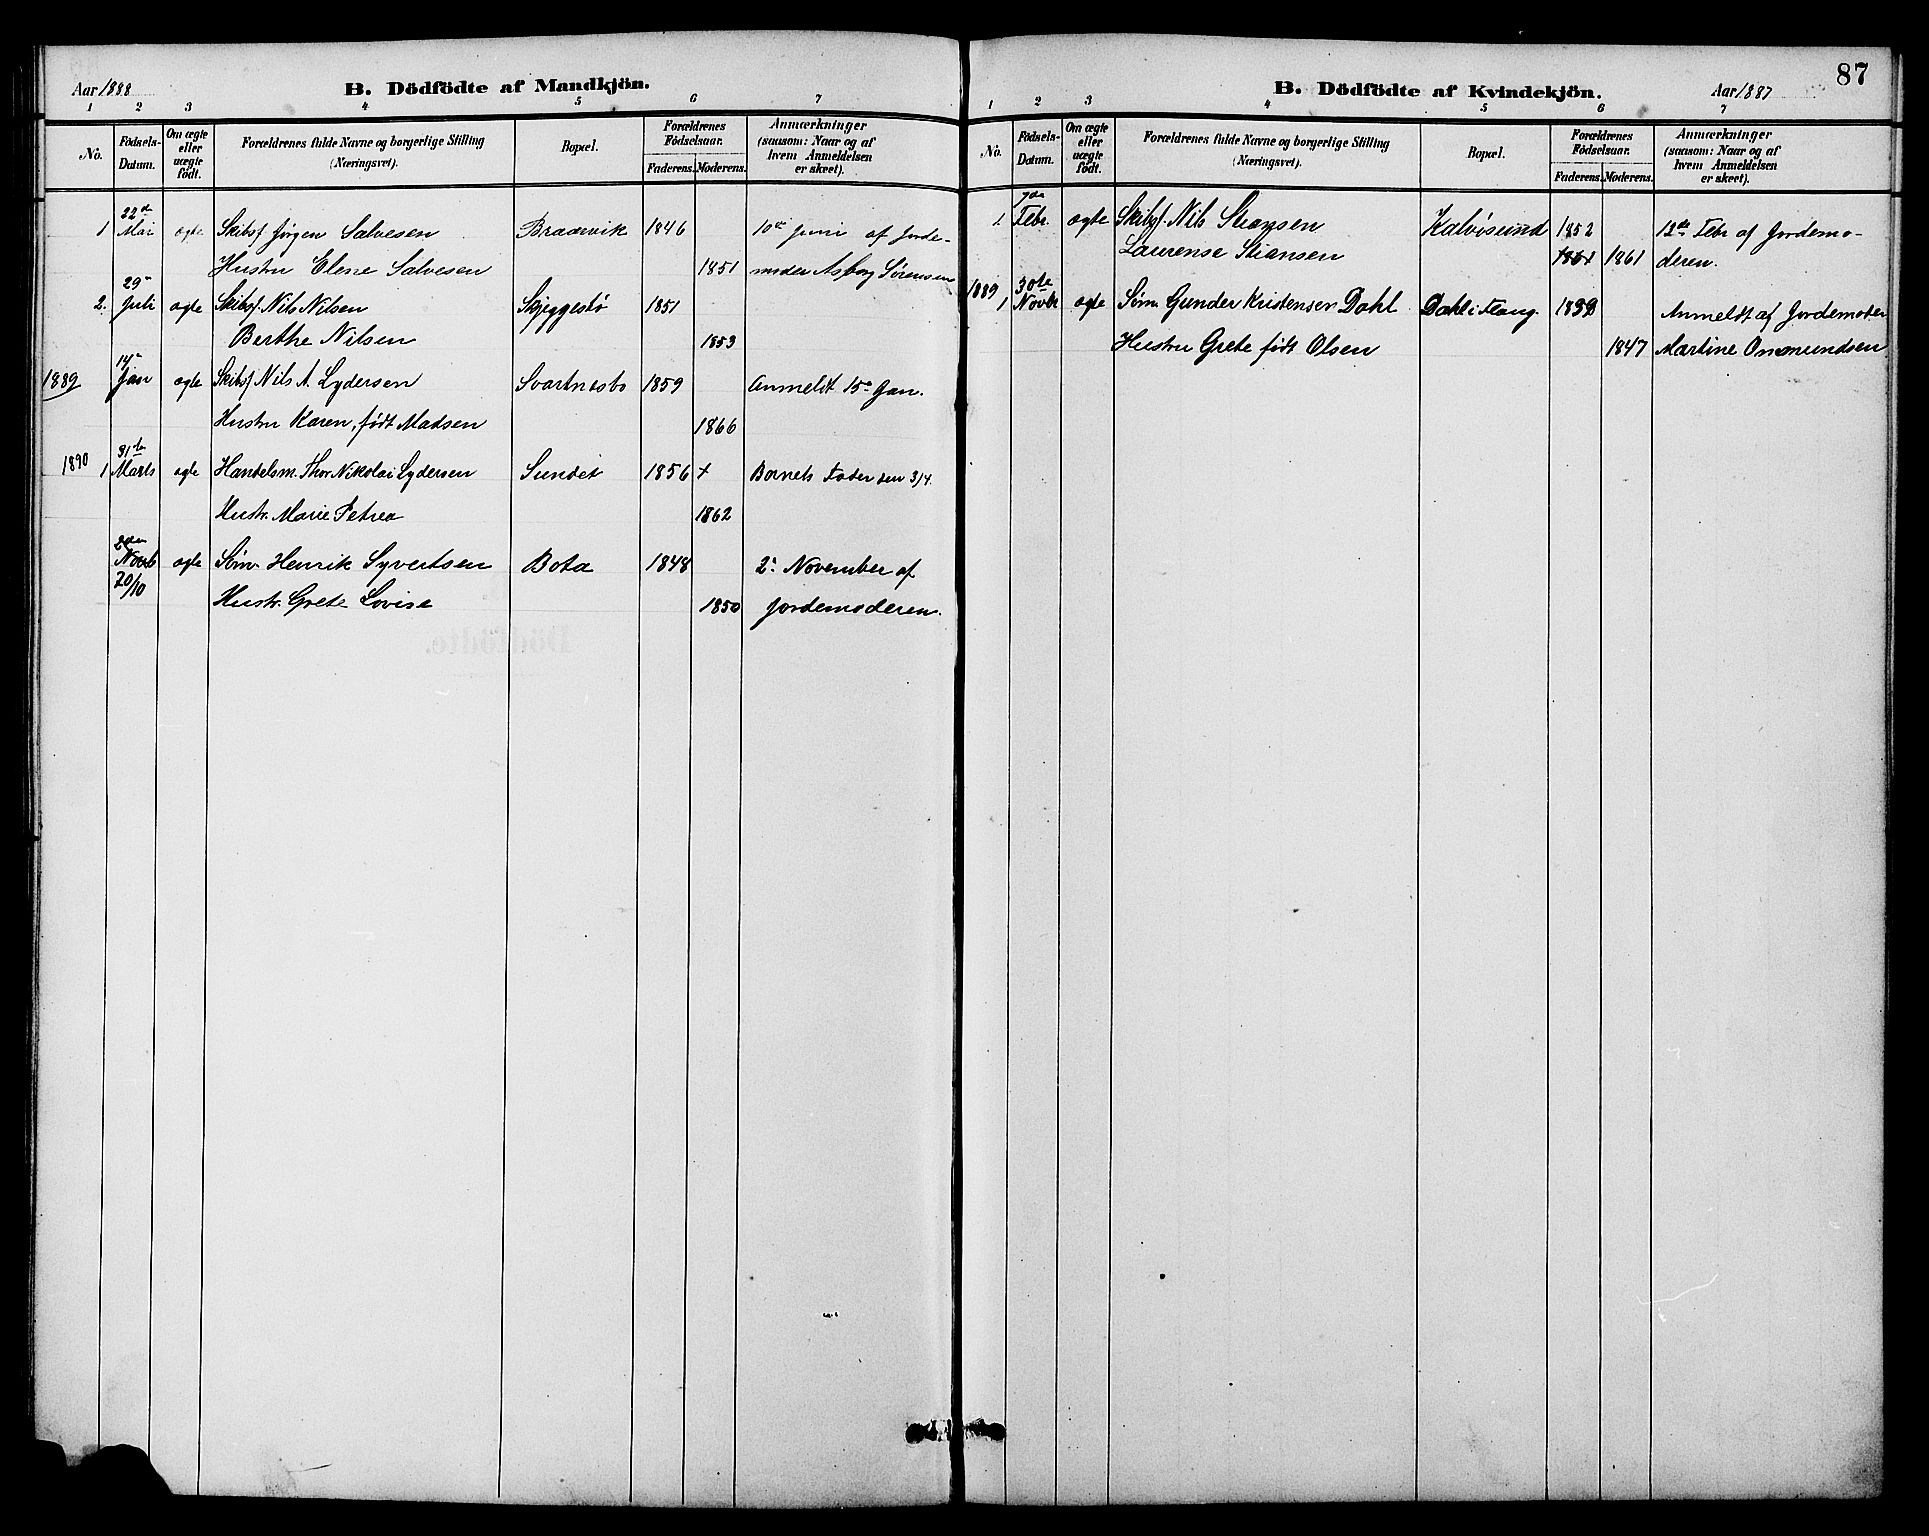 Aar 1888
B. Dödfödte af Mandkjön.
1 2 3 4 5 6 7
No.
Födsels-Datum.
Om ægte eller uægte födt.
Forældrenes fulde Navne og borgerlige Stilling (Næringsvei).
Bopæl.
Forældrenes Födselsaar.
Faderens. Moderens.
Anmærkninger (saasom: Naar og af hvem Anmeldelsen er skeet).
22de
1 Mai ægte Skibsf Jørgen Salvesen Bradevik 1846 10de Juni af Jorde-
Hustru Elene Salvesen 1851 moder Asborg Sørensen
29de
2. Juli ægte Skibsf. Nils Nilsen Skjeggestø 1851
Berthe Nilsen 1853
14de
1889 Jan ægte Skibsf Nils A. Lydersen Svartnesbo 1859 Anmeldt 15de Jan.
Hustru Karen, født Madsen 1866
31de
1890 1 Marts ægte Handelsm. Thor Nikolai Lydersen Sundet 1856 + Barnets Fader den 3/4.
Hustr. Marie Petrea 1862
2den
Novb ægte Søm. Henrik Syvertsen Bota 1848 2de November af
20/10 Hustr. Grete Lovise 1850 Jordemoderen.
87
B. Dödfödte af Kvindekjön.
Aar 1887
1 2 3 4 5 6 7
No.
Födsels-Datum.
Om ægte eller uægte födt.
Forældrenes fulde Navne og borgerlige Stilling (Næringsvei).
Bopæl.
Forældrenes Födselsaar.
Faderens. Moderens.
Anmærkninger (saasom: Naar og af hvem Anmeldelsen er skeet).
7de
1. Febr. ægte Skibsf. Nils Stiansen Kalvøsund 1852 12te Febr af Jordemo-
Laurense Stiansen 1861 1861 deren.
1889 30te
1 Novbr ægte Søm. Gunder Kristensen Dahl Dahl i Flang. Anmeldt af Jordemoder
Hustru Grete født Olsen 1847 Martine Onsmundsen